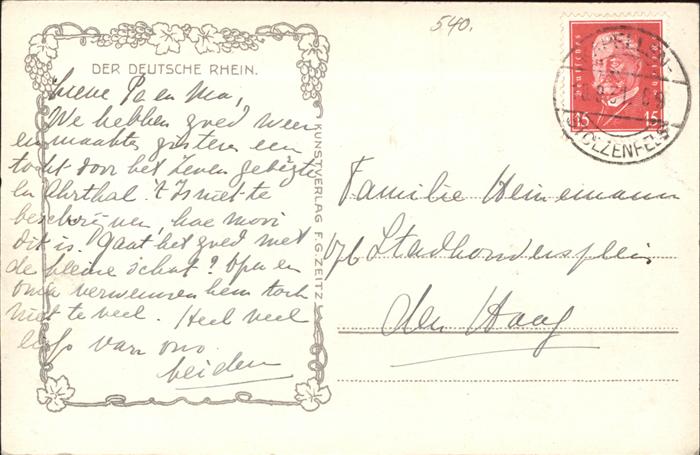 540.
DER DEUTSCHE RHEIN.
Lieve Pa en Ma,
We hebben goed weer
en maakten gisteren een
tocht door het Zeven gebergte
en Ahrthal. 't Is niet te
beschrijven, hoe mooi
dit is. Gaat het goed met
de kleine schat? Opa en
oma verwennen hem toch
niet te veel. Heel veel
liefs van ons
beiden
KUNSTVERLAG F.G.ZEITZ
Familie Heinemann
Stadhoudersplein
den Haag
Deutsches Reich
15 15
STOLZENFELS